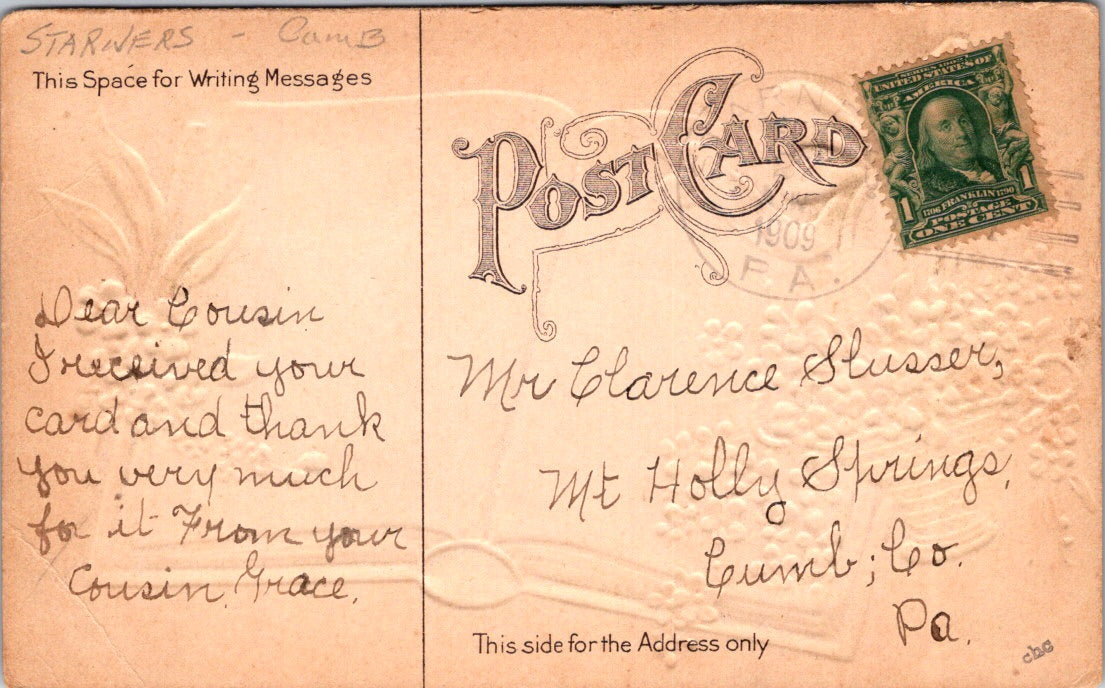 STARNERS - CamB
This Space for Writing Messages
POST CARD
SERIES 1902
UNITED STATES OF
AMERICA
1 1
1706 FRANKLIN 1790
POSTAGE
ONE CENT
1909
PA.
Dear Cousin
I received your
card and thank
you very much
for it From your
Cousin Grace.
Mr Clarence Slusser,
Mt Holly Springs,
Cumb; Co.
Pa.
This side for the Address only
chg